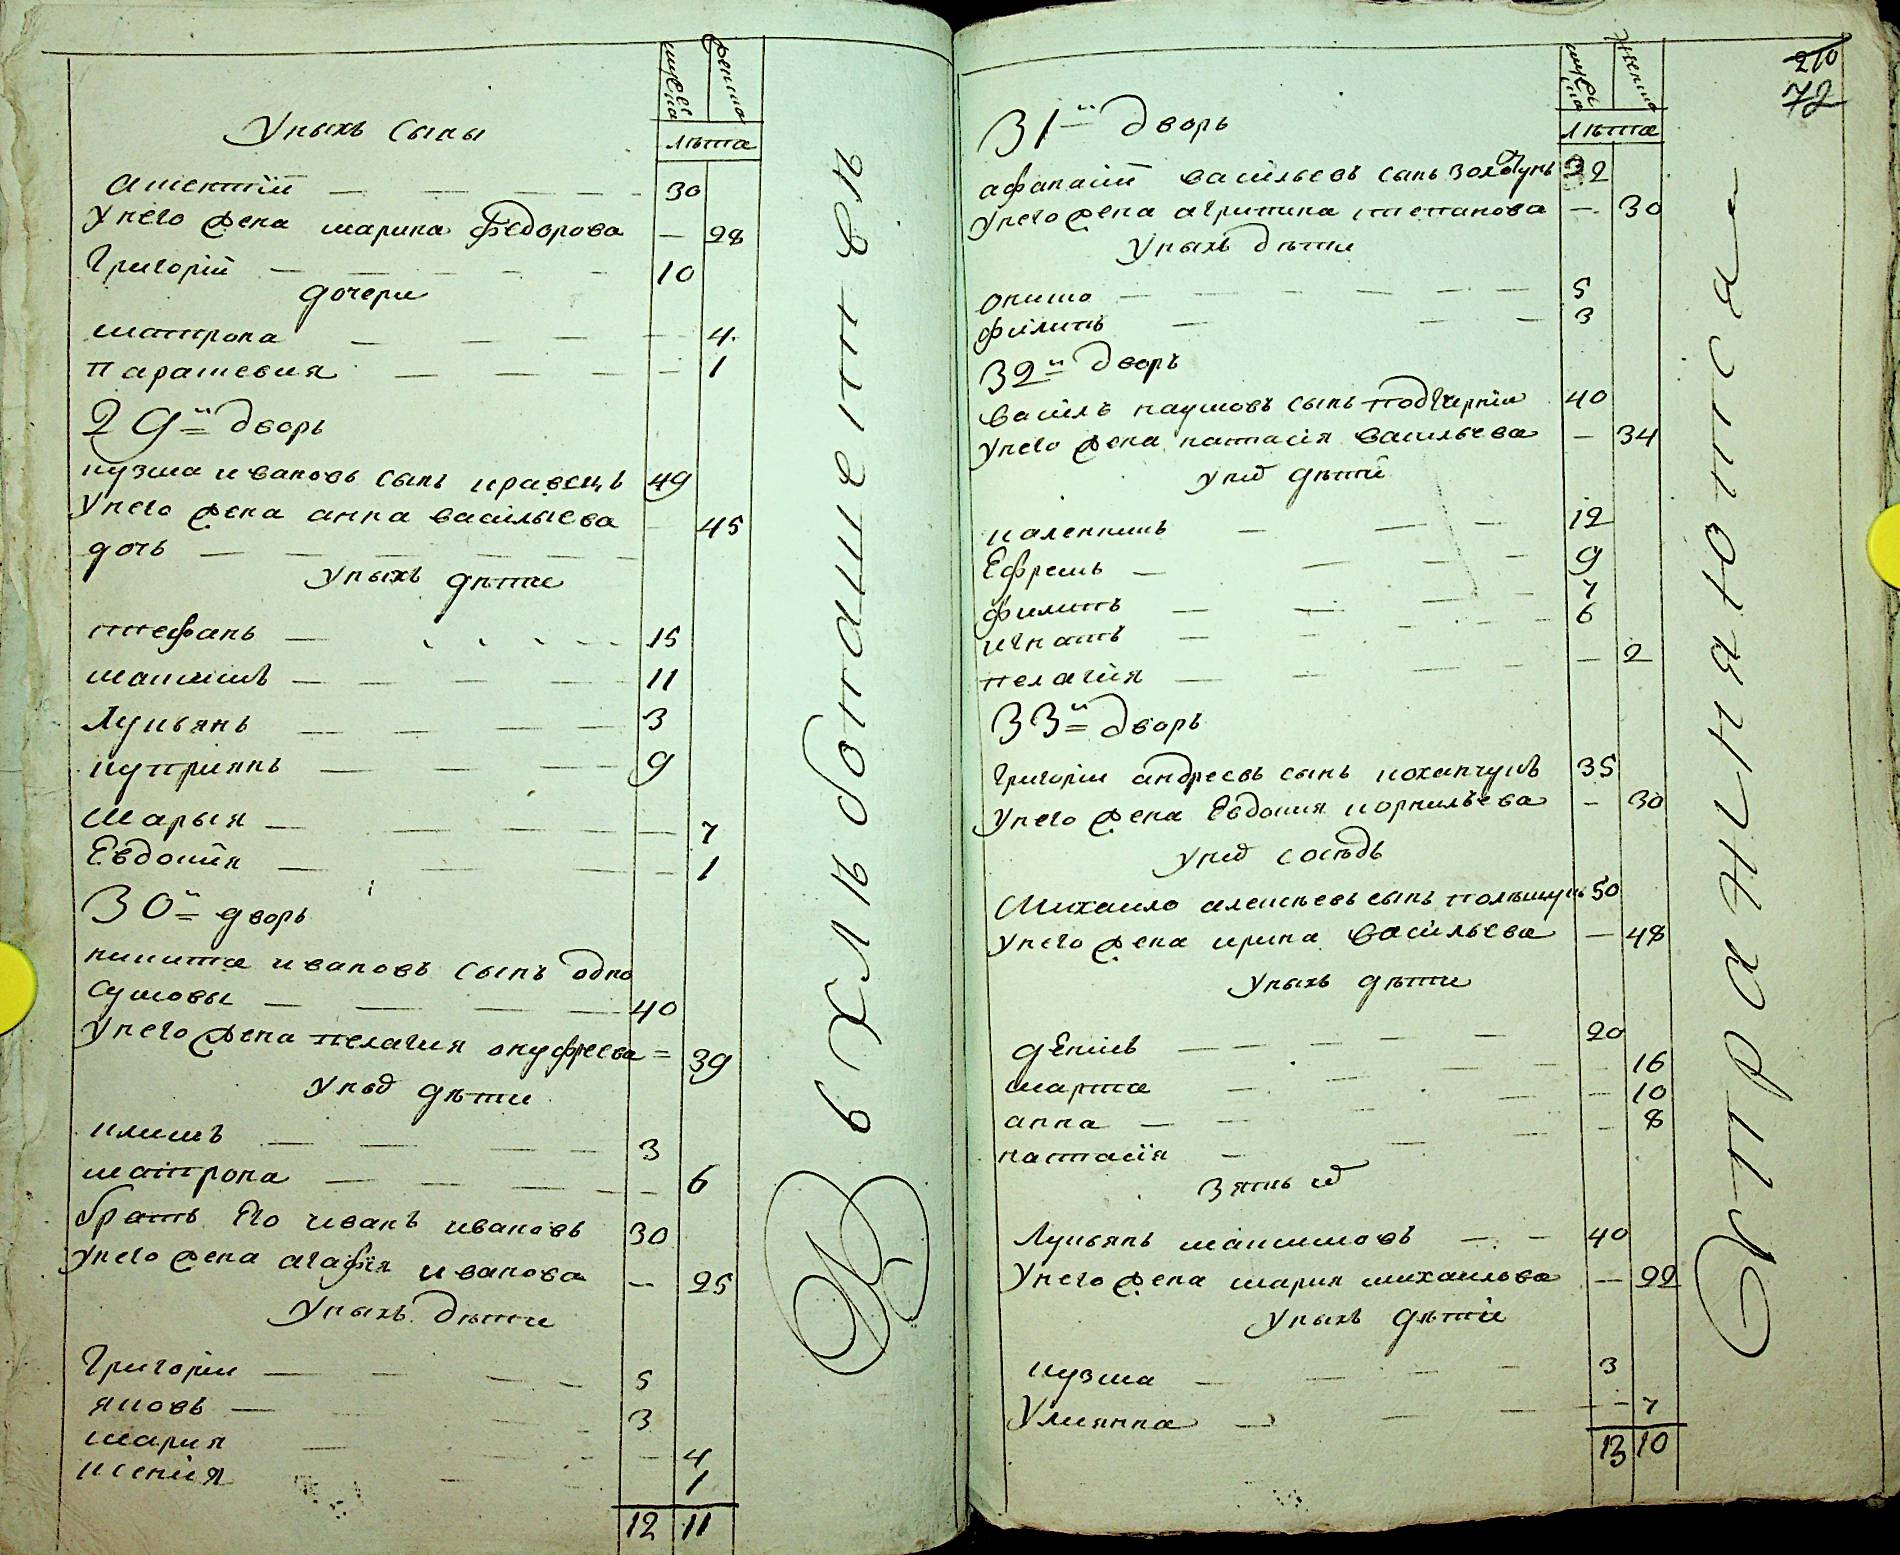 мужеска
женска
лѣта
У ныхъ сыны
Алексій — 30
У него жена марина Федорова — 28
Григорій — 10
дочери
матрона — 4
Параскевия — 1
29й дворъ
кузма ивановъ сынъ кравецъ 49
У него жена анна васильева 45
дочь —
У ныхъ дѣти
стефанъ — 15
максимъ — 11
Лукьянъ — 3
куприянъ — 9
Марья — 7
Евдокия — 1
30й дворъ
никита ивановъ сынъ одно
сумовы — 40
У него жена пелагия онуфреева = 39
У него дѣти
климъ — 3
матрона — 6
братъ Его иванъ ивановъ 30
У него жена агафия иванова — 25
У ныхъ дѣти
Григорій — 5
яковъ — 3
мария — 4
ксения 1
12 11
В хлѣбопашествѣ
210
72
мужеска
женска
лѣта
31й дворъ
афанасій васильевъ сынъ 32
У него жена агрипина степанова — 30
У ныхъ дѣти
5
филипъ — 3
32й дворъ
василь наумовъ сынъ 40
У него жена настасія васильева — 34
У ныхъ дѣти
каленикъ — 12
Ефремъ — 9
филипъ — 7
игнатъ — 6
пелагия — 2
33й дворъ
Григорій андреевъ сынъ коханчукъ 35
У него жена Евдокия корнильева — 30
У него сосѣдъ
Михайло алексѣевъ сынъ 50
У него жена ирина васильева — 48
У ныхъ дѣти
денисъ — 20
марта — 16
анна — 10
настасія — 8
зять его
Лукьянъ максимовъ — 40
У него жена мария михайлова — 22
У ныхъ дѣти
кузма — 3
Улиянна — 7
13 10
упражняются